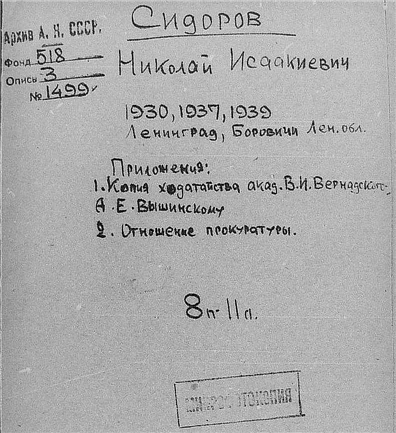 Архив А. Н. СССР.
Фонд 518
Опись 3
№ 1499
Сидоров
Николай Исаакиевич
1930, 1937, 1939
Ленинград, Боровичи Лен. обл.
Приложения:
1. Копия ходатайства акад. В. И. Вернадского
А. Е. Вышинскому
2. Отношение прокуратуры.
8п-11л.